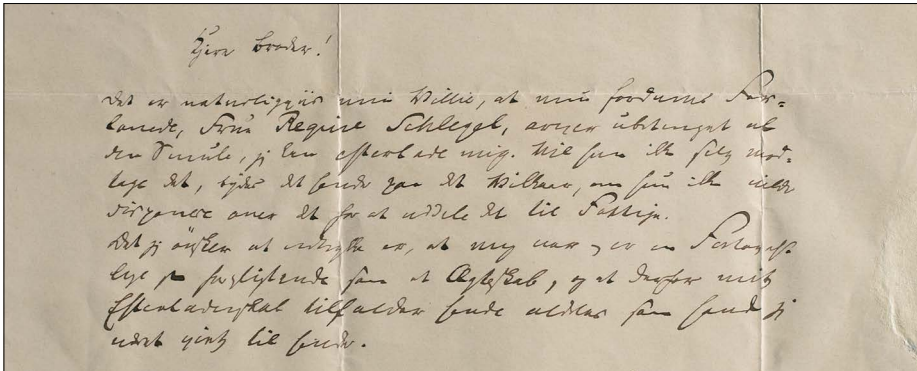 Kjere Broder!
Det er naturligviis min Villie, at min forhenværende For-
lovede, Fru Regine Schlegel, arver ubetinget al
den Smule, jeg kan efterlade mig. Vil hun ikke selv mod-
tage det, bydes det hende paa det Vilkaar, om hun ikke vilde
disponere over det for at uddele det til Fattige.
Det jeg ønsker at udtrykke er, at mig var og er en Forlovelse
lige saa forpligtende som et Ægteskab, og at derfor mit
Efterladenskab tilfalder hende aldeles som havde jeg
været givt til hende.